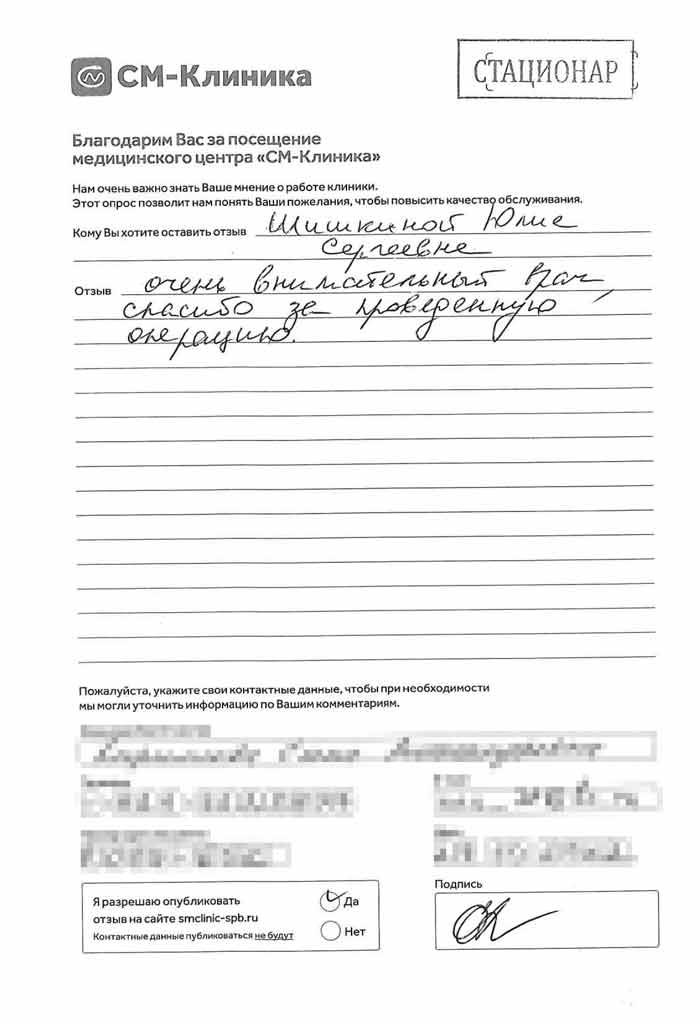 СМ-Клиника
СТАЦИОНАР
Благодарим Вас за посещение
медицинского центра «СМ-Клиника»
Нам очень важно знать Ваше мнение о работе клиники.
Этот опрос позволит нам понять Ваши пожелания, чтобы повысить качество обслуживания.
Кому Вы хотите оставить отзыв Шишкиной Юлие
Сергеевне
Отзыв очень внимательный врач,
спасибо за проведенную
операцию.
Пожалуйста, укажите свои контактные данные, чтобы при необходимости
мы могли уточнить информацию по Вашим комментариям.
Я разрешаю опубликовать
отзыв на сайте smclinic-spb.ru
Контактные данные публиковаться не будут
Да
Нет
Подпись